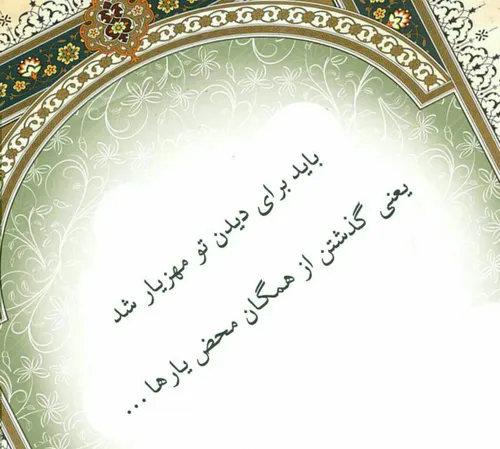 باید برای دیدن تو مهزیار شد
یعنی گذشتن از همگان محض یارها ...